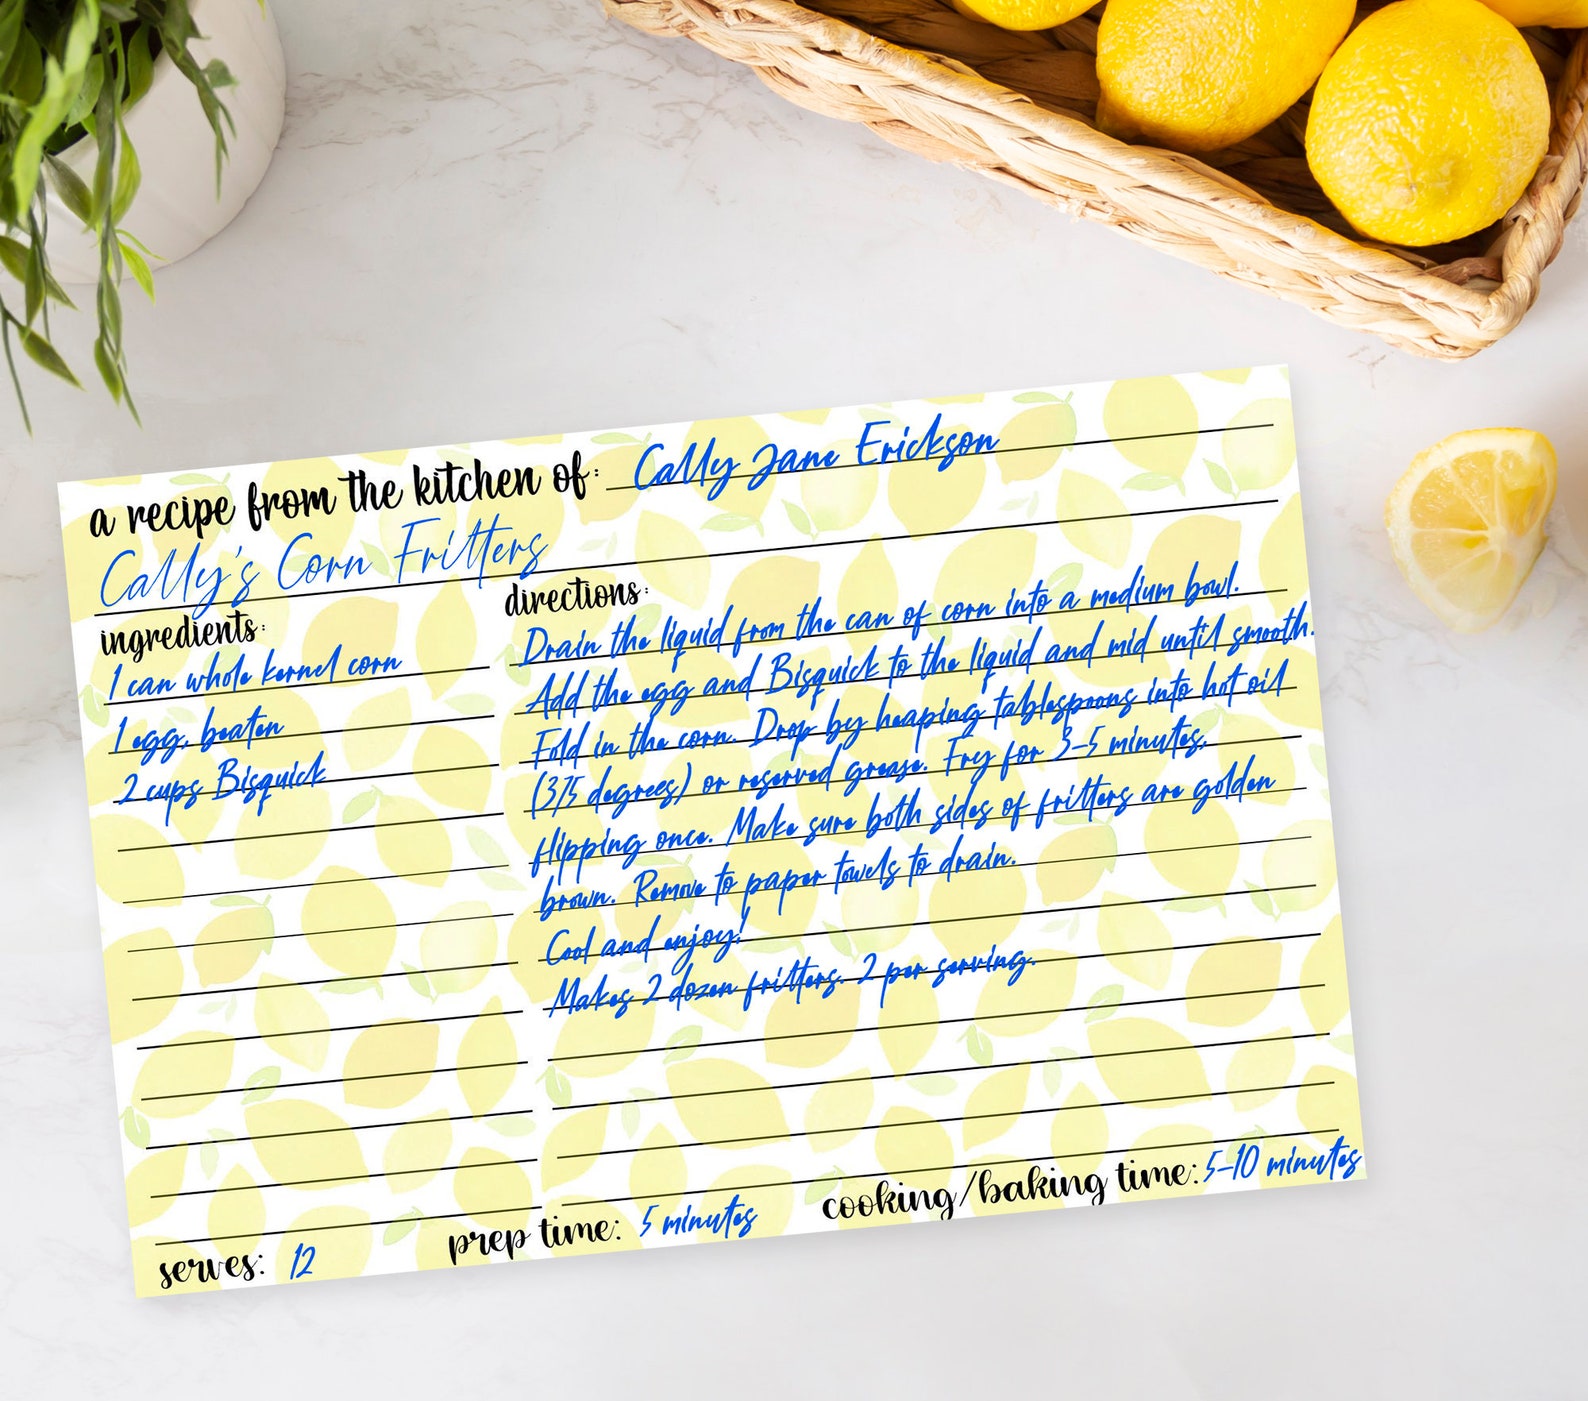 a recipe from the kitchen of: Cally Jane Erickson
Cally's Corn Fritters
ingredients:
1 can whole kernel corn
1 egg, beaten
2 cups Bisquick
directions:
Drain the liquid from the can of corn into a medium bowl.
Add the egg and Bisquick to the liquid and mid until smooth.
Fold in the corn. Drop by heaping tablespoons into hot oil
(375 degrees) or reserved grease. Fry for 3-5 minutes,
flipping once. Make sure both sides of fritters are golden
brown. Remove to paper towels to drain.
Cool and enjoy!
Makes 2 dozen fritters. 2 per serving.
serves: 12 prep time: 5 minutes cooking/baking time: 5-10 minutes